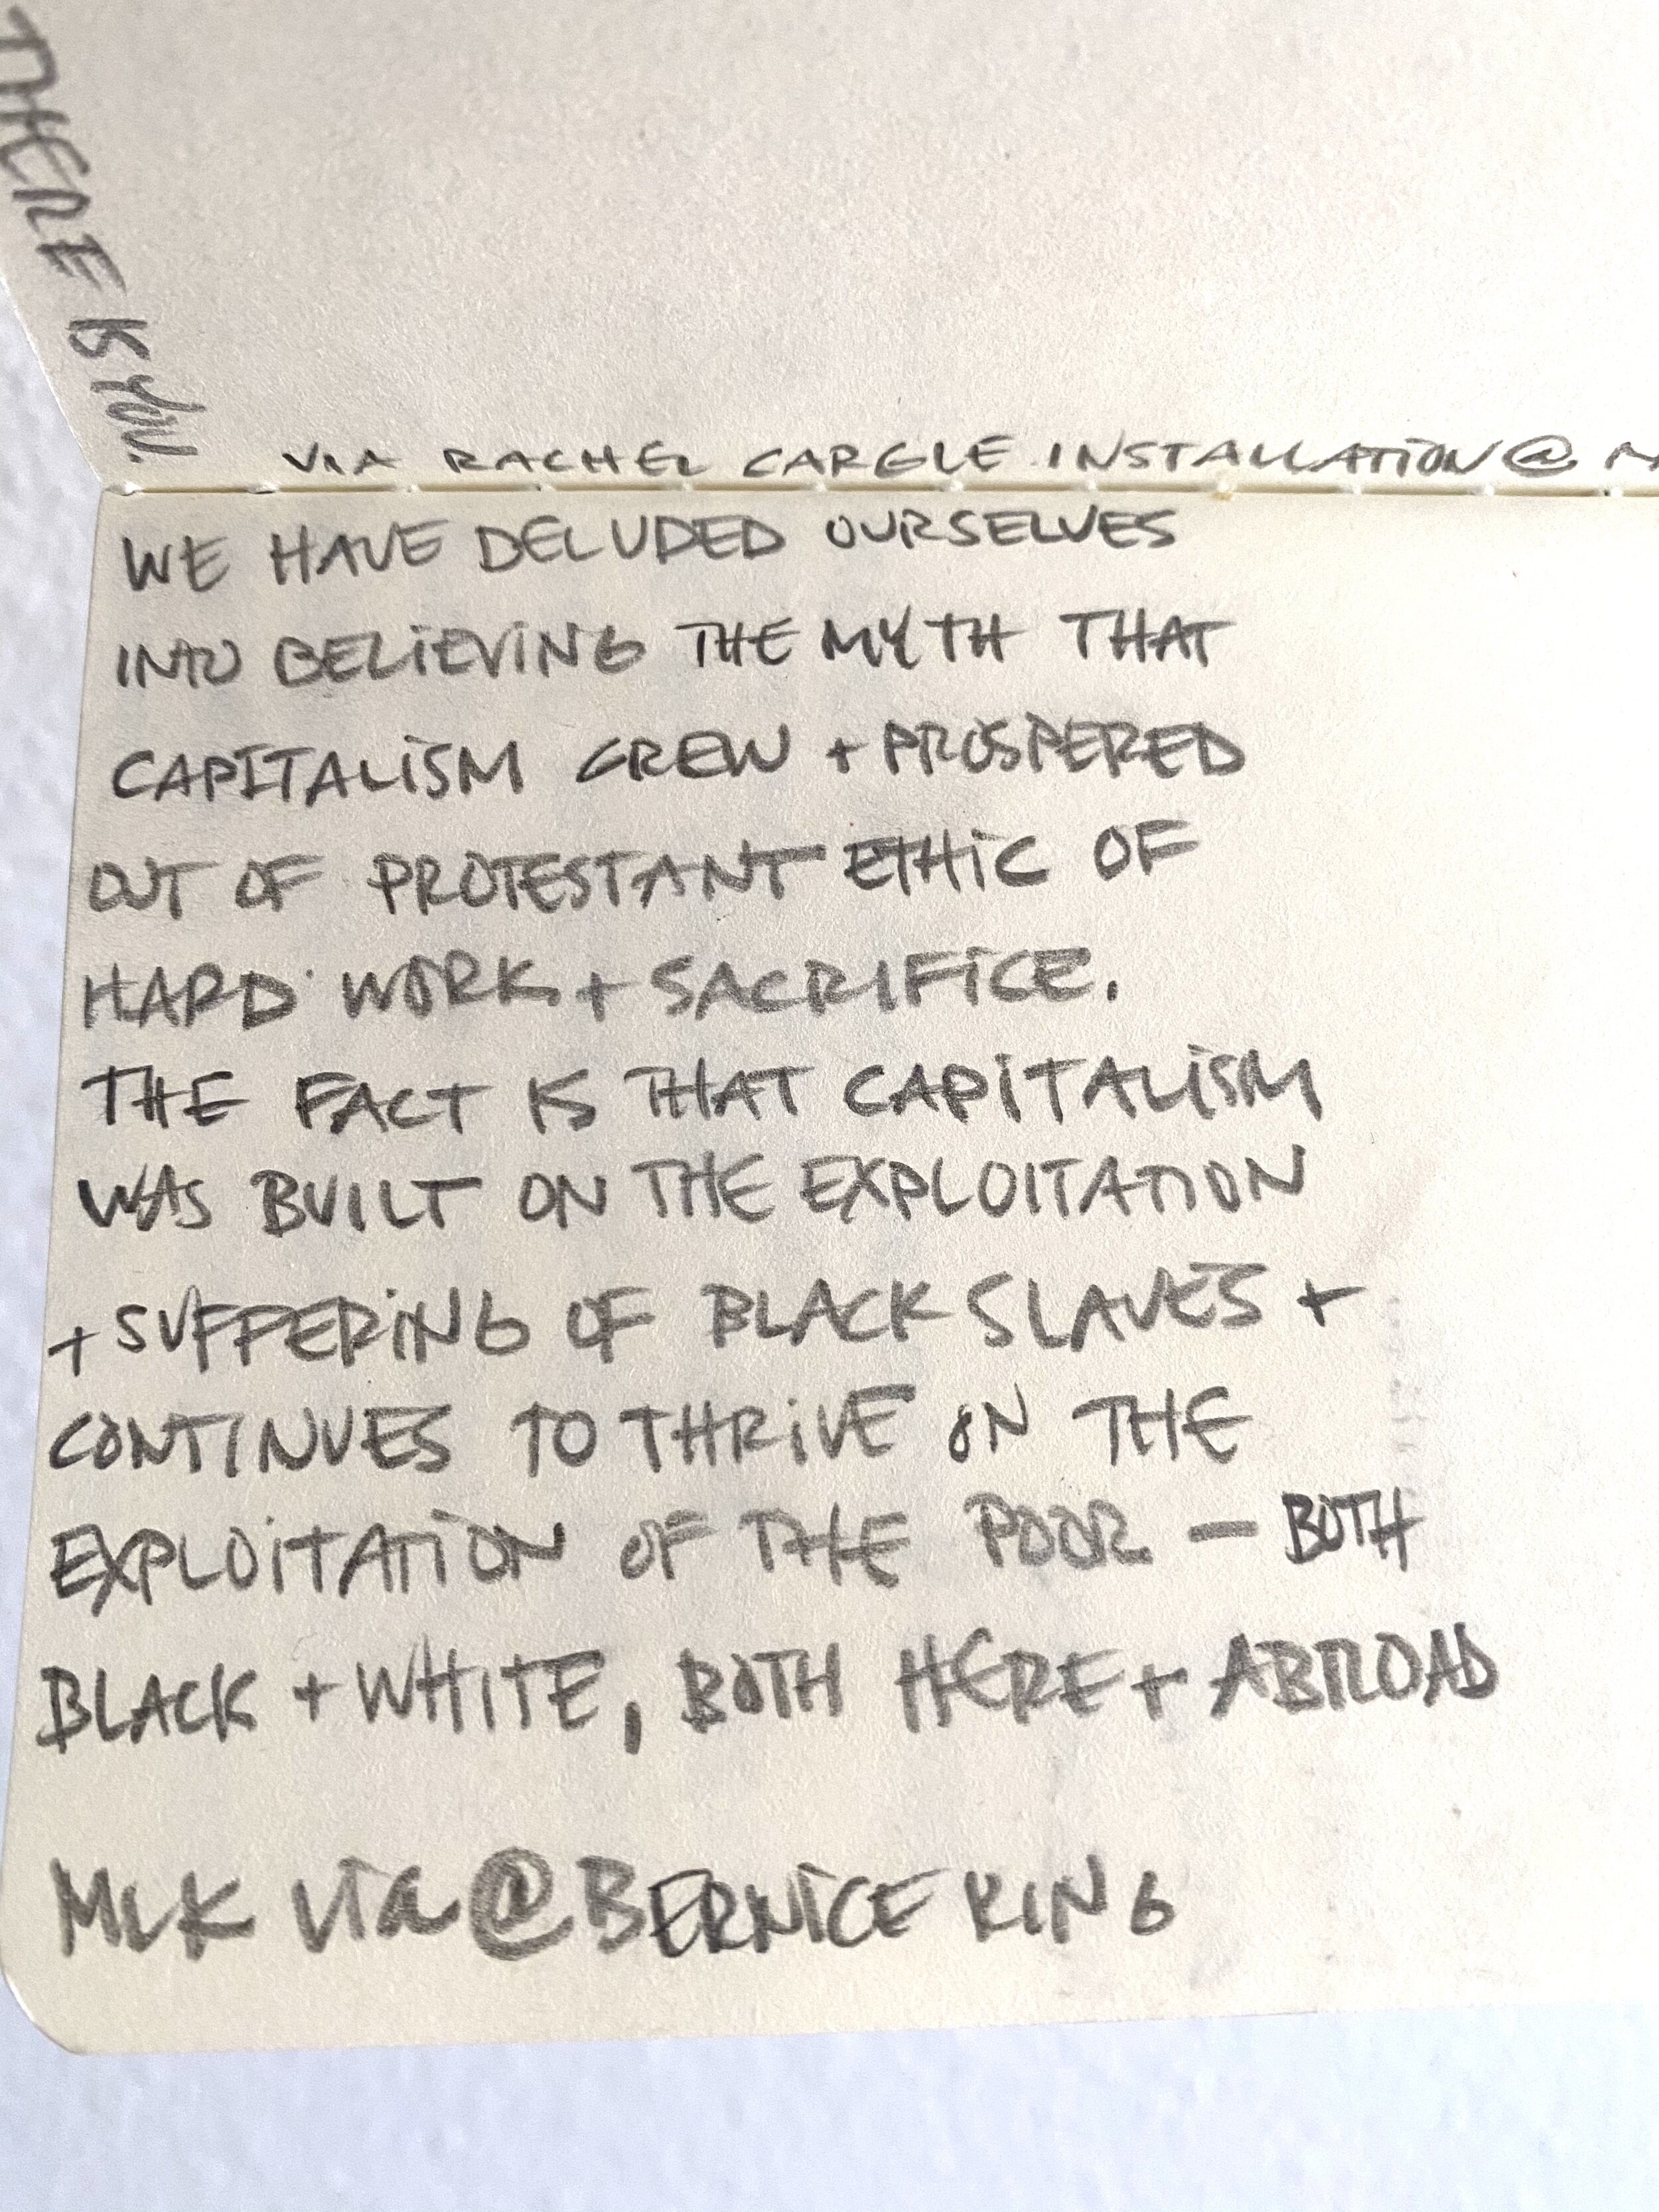 THERE IS YOU.
VIA RACHEL CARGLE INSTALLATION @
WE HAVE DELUDED OURSELVES
INTO BELIEVING THE MYTH THAT
CAPITALISM GREW + PROSPERED
OUT OF PROTESTANT ETHIC OF
HARD WORK + SACRIFICE.
THE FACT IS THAT CAPITALISM
WAS BUILT ON THE EXPLOITATION
+ SUFFERING OF BLACK SLAVES +
CONTINUES TO THRIVE ON THE
EXPLOITATION OF THE POOR — BOTH
BLACK + WHITE, BOTH HERE + ABROAD
MLK via @BERNICE KING